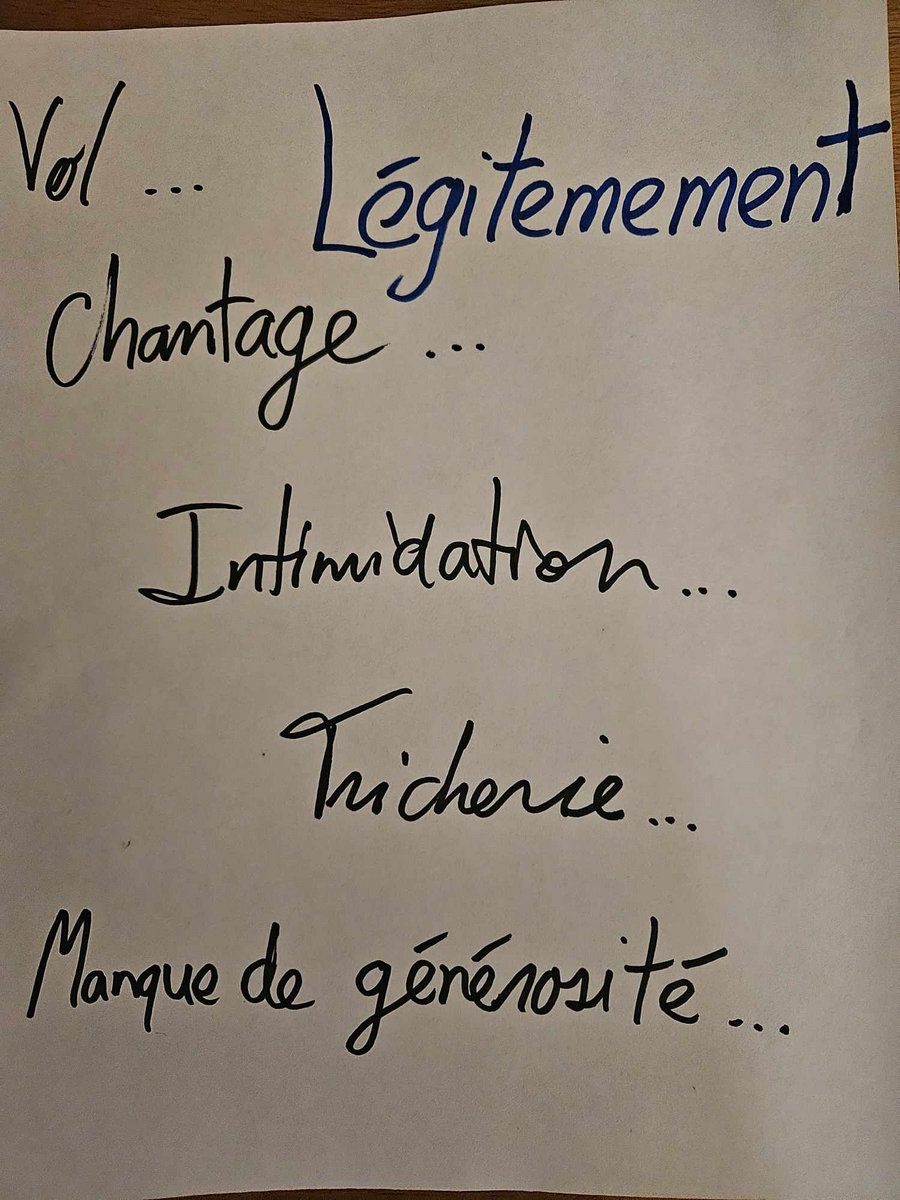 Vol ...
Légitemement
Chantage ...
Intimidation ...
Tricherie ...
Manque de générosité ...